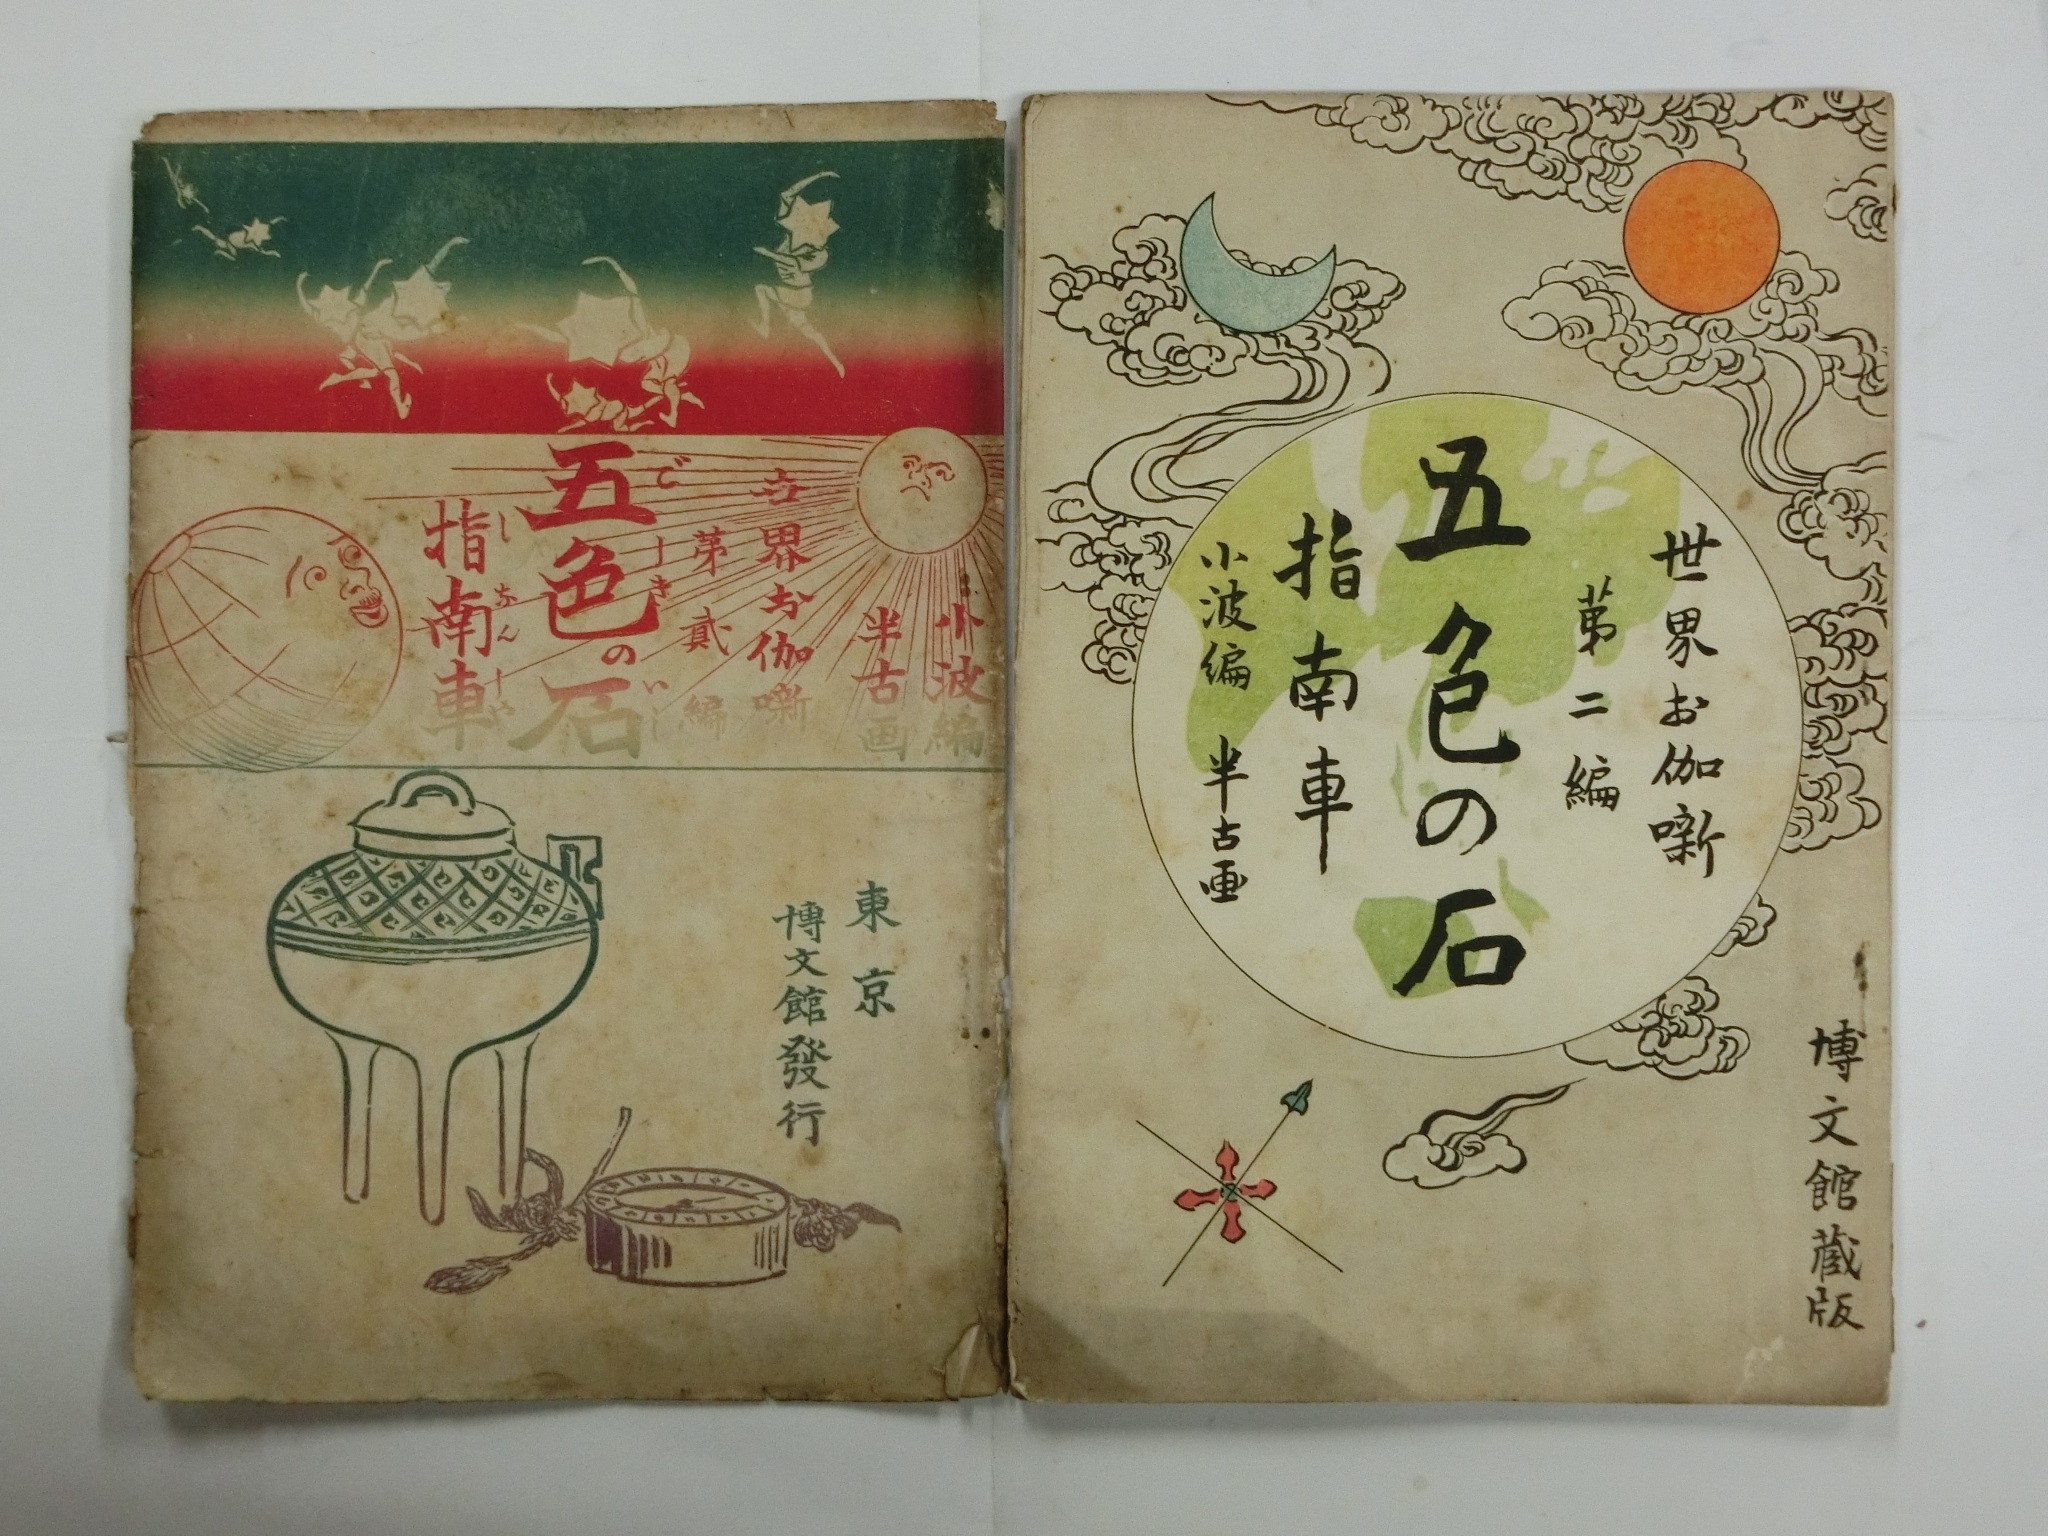 小波編
半古画
世界お伽噺
第貳編
五色の石
ごしきのいし
指南車
しなんしや
東京
博文館發行
世界お伽噺
第二編
五色の石
指南車
小波編 半古画
博文館蔵版